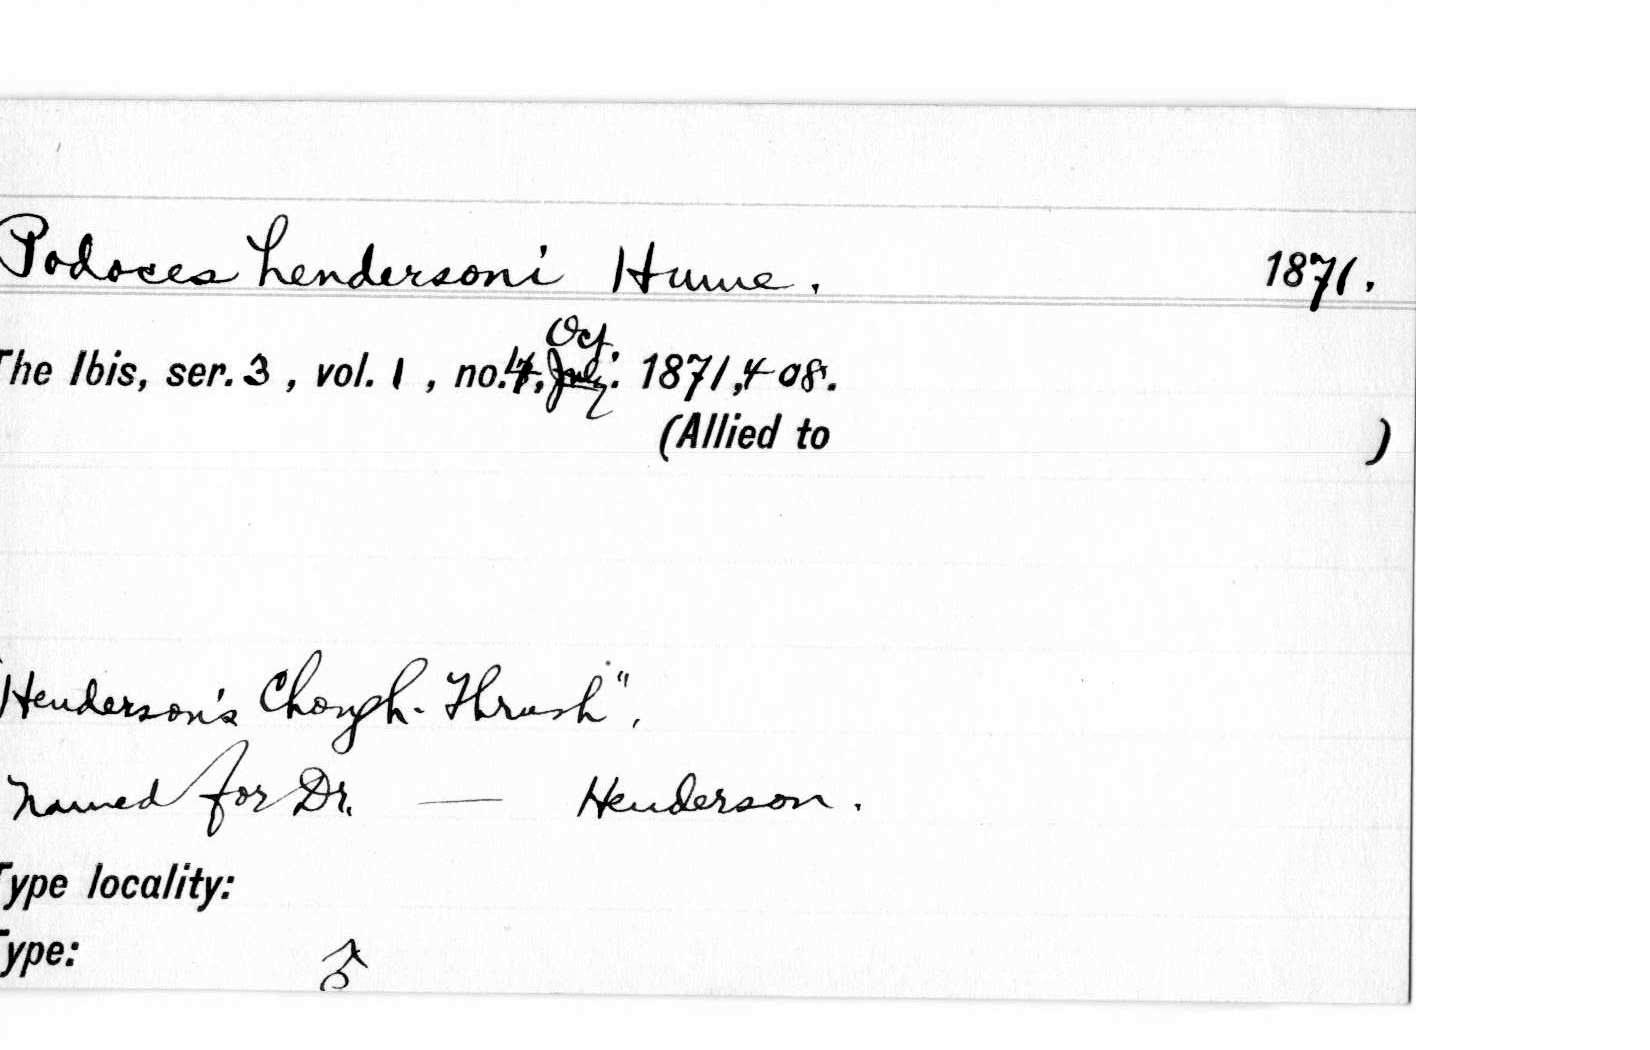 Podoces hendersoni Hume. 1871.
Oct.
The Ibis, ser. 3, vol. 1, no. 4, July. 1871, 408.
(Allied to )
"Henderson's Chough-Thrush".
Named for Dr. — Henderson.
Type locality:
Type: ♂